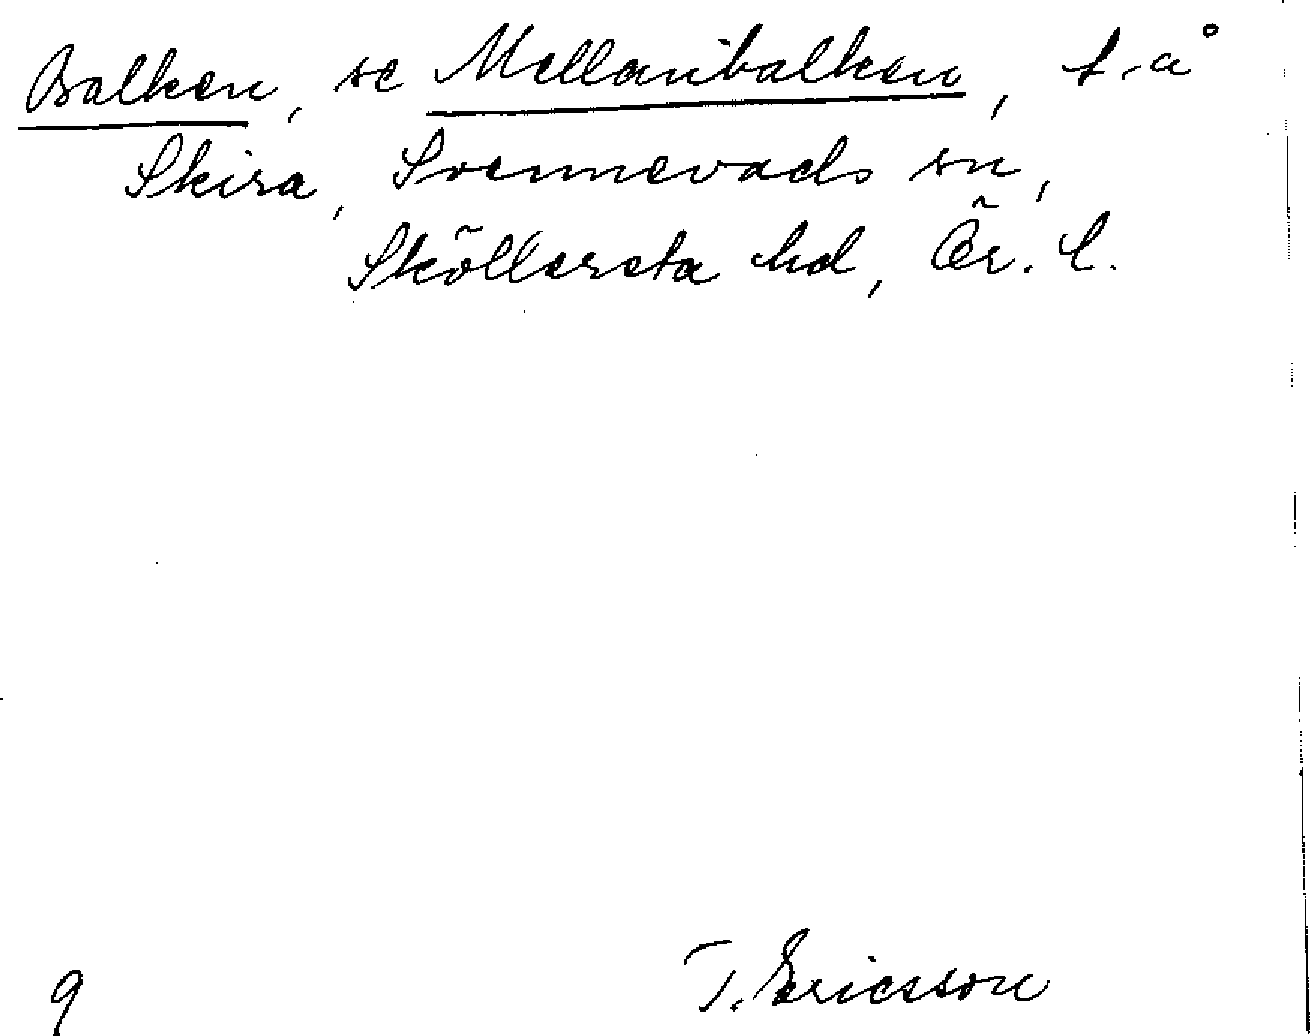 Balken, se Mellanbalken, t. å
Skira, Svennevads sn,
Sköllersta hd, Ör. l.
T. Ericsson
9